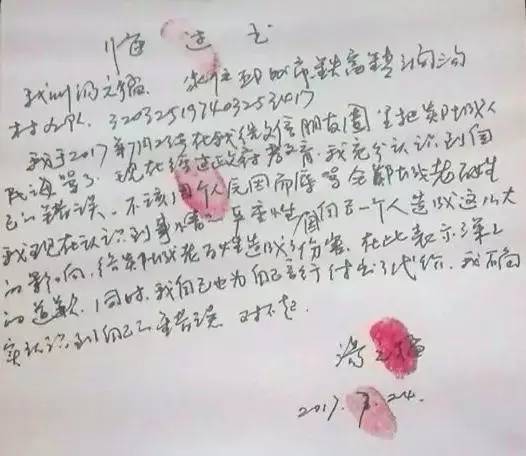 悔过书
我叫冯 家住郯城市 镇 沟
村 320325197403253017
我于2017年7月23号在我 朋友圈里把炎阝城人
民 骂了 现在经过政府教育,我充分认识到自
己的错误,不该因个人原因而辱骂全郯城老百姓
我现在认识到事 严重性,因自己一个人造成这么大
的影响,给 城老百姓造成了伤害,在此表示深深
的道歉,同时,我自己也为自己言行付出了代价,我 确
实认识到自己的 错误 对不起
冯
2017.7.24.